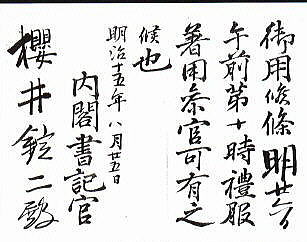 御用候條明廿六日
午前第十時禮服
著用参官可有之
候也
明治十五年八月廿五日
内閣書記官
櫻井錠二殿